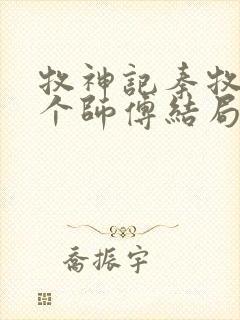 牧神記秦牧
个師傅結局
喬振宇